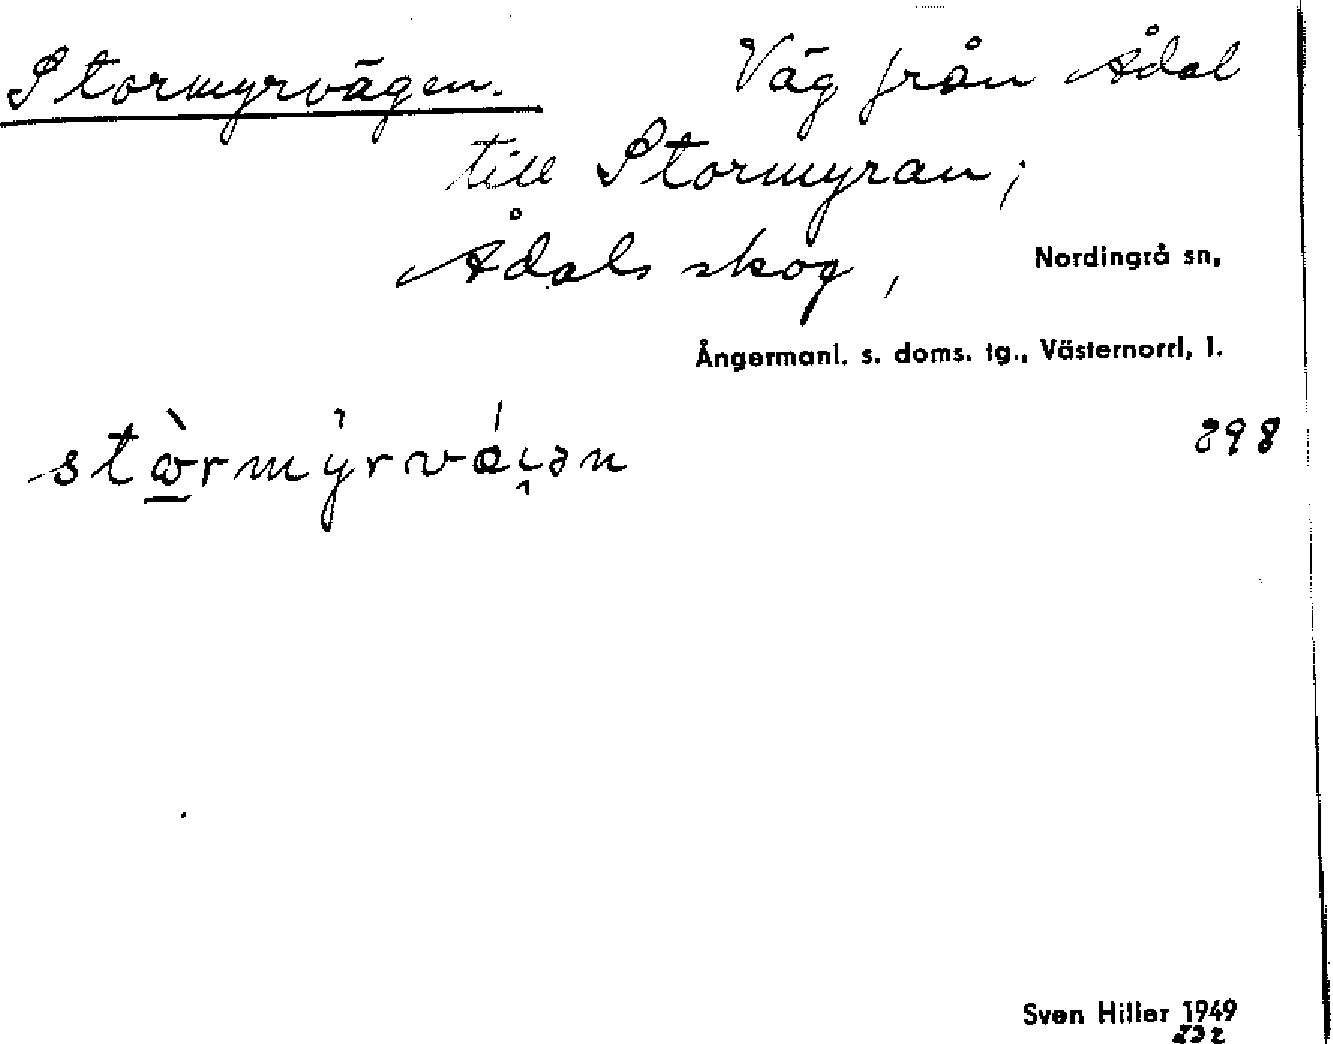 Stormyrvägen. Väg från Ådal
till Stormyran,
Ådals skog, Nordingrå sn,
Ångermanl. s. doms. tg., Västernorrl. l.
898
Sven Hiller 1949